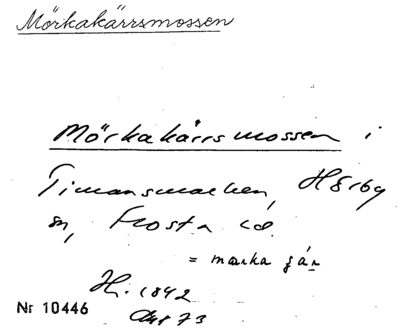 Mörkakärrsmossen
Mörkakärrsmossen i
Timansmarken, Hörby
sn, Frosta
= marka
Hi. 1842
73
Nr 10446